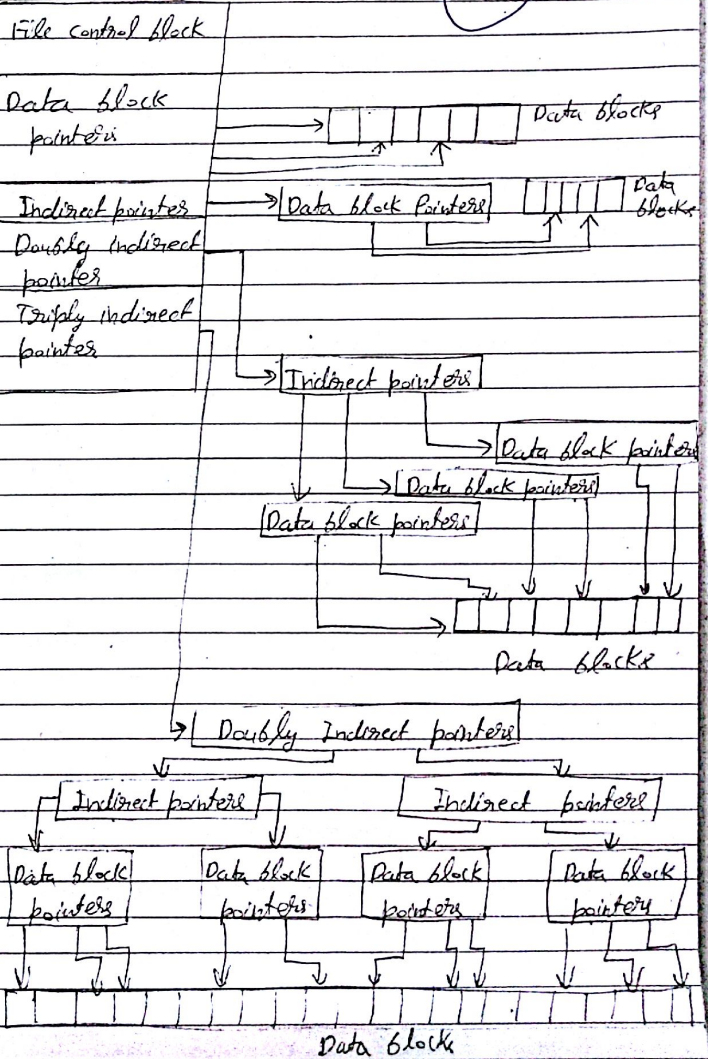 File control block
Data block
pointers
Data blocks
Indirect pointer
Data block Pointers
Data
blocks
Doubly indirect
pointer
Triply indirect
pointer
Indirect pointers
Data block pointers
Data block pointers
Data block pointers
Data blocks
Doubly Indirect pointers
Indirect pointers
Indirect pointers
Data block
pointers
Data block
pointers
Data block
pointers
Data block
pointers
Data blocks